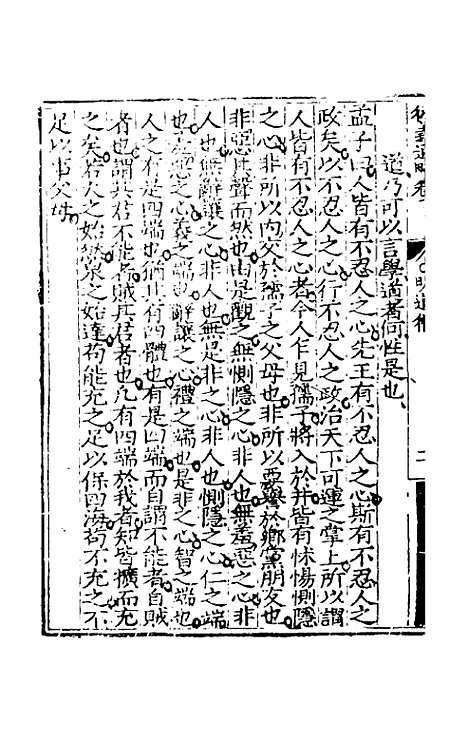 道乃可以言學道者何性是也
孟子曰人皆有不忍人之心先王有不忍人之心斯有不忍人之
政矣以不忍人之心行不忍人之政治天下可運之掌上所以謂
人皆有不忍人之心者今人乍見孺子將入於井皆有怵惕惻隱
之心非所以內交於孺子之父母也非所以要譽於鄉黨朋友也
非惡其聲而然也由是觀之無惻隱之心非人也無羞惡之心非
人也無辭讓之心非人也無是非之心非人也惻隱之心仁之端
也羞惡之心義之端也辭讓之心禮之端也是非之心智之端也
人之有是四端也猶其有四體也有是四端而自謂不能者自賊
者也謂其君不能者賊其君者也凡有四端於我者知皆擴而充
之矣若火之始然泉之始達苟能充之足以保四海苟不充之不
足以事父母